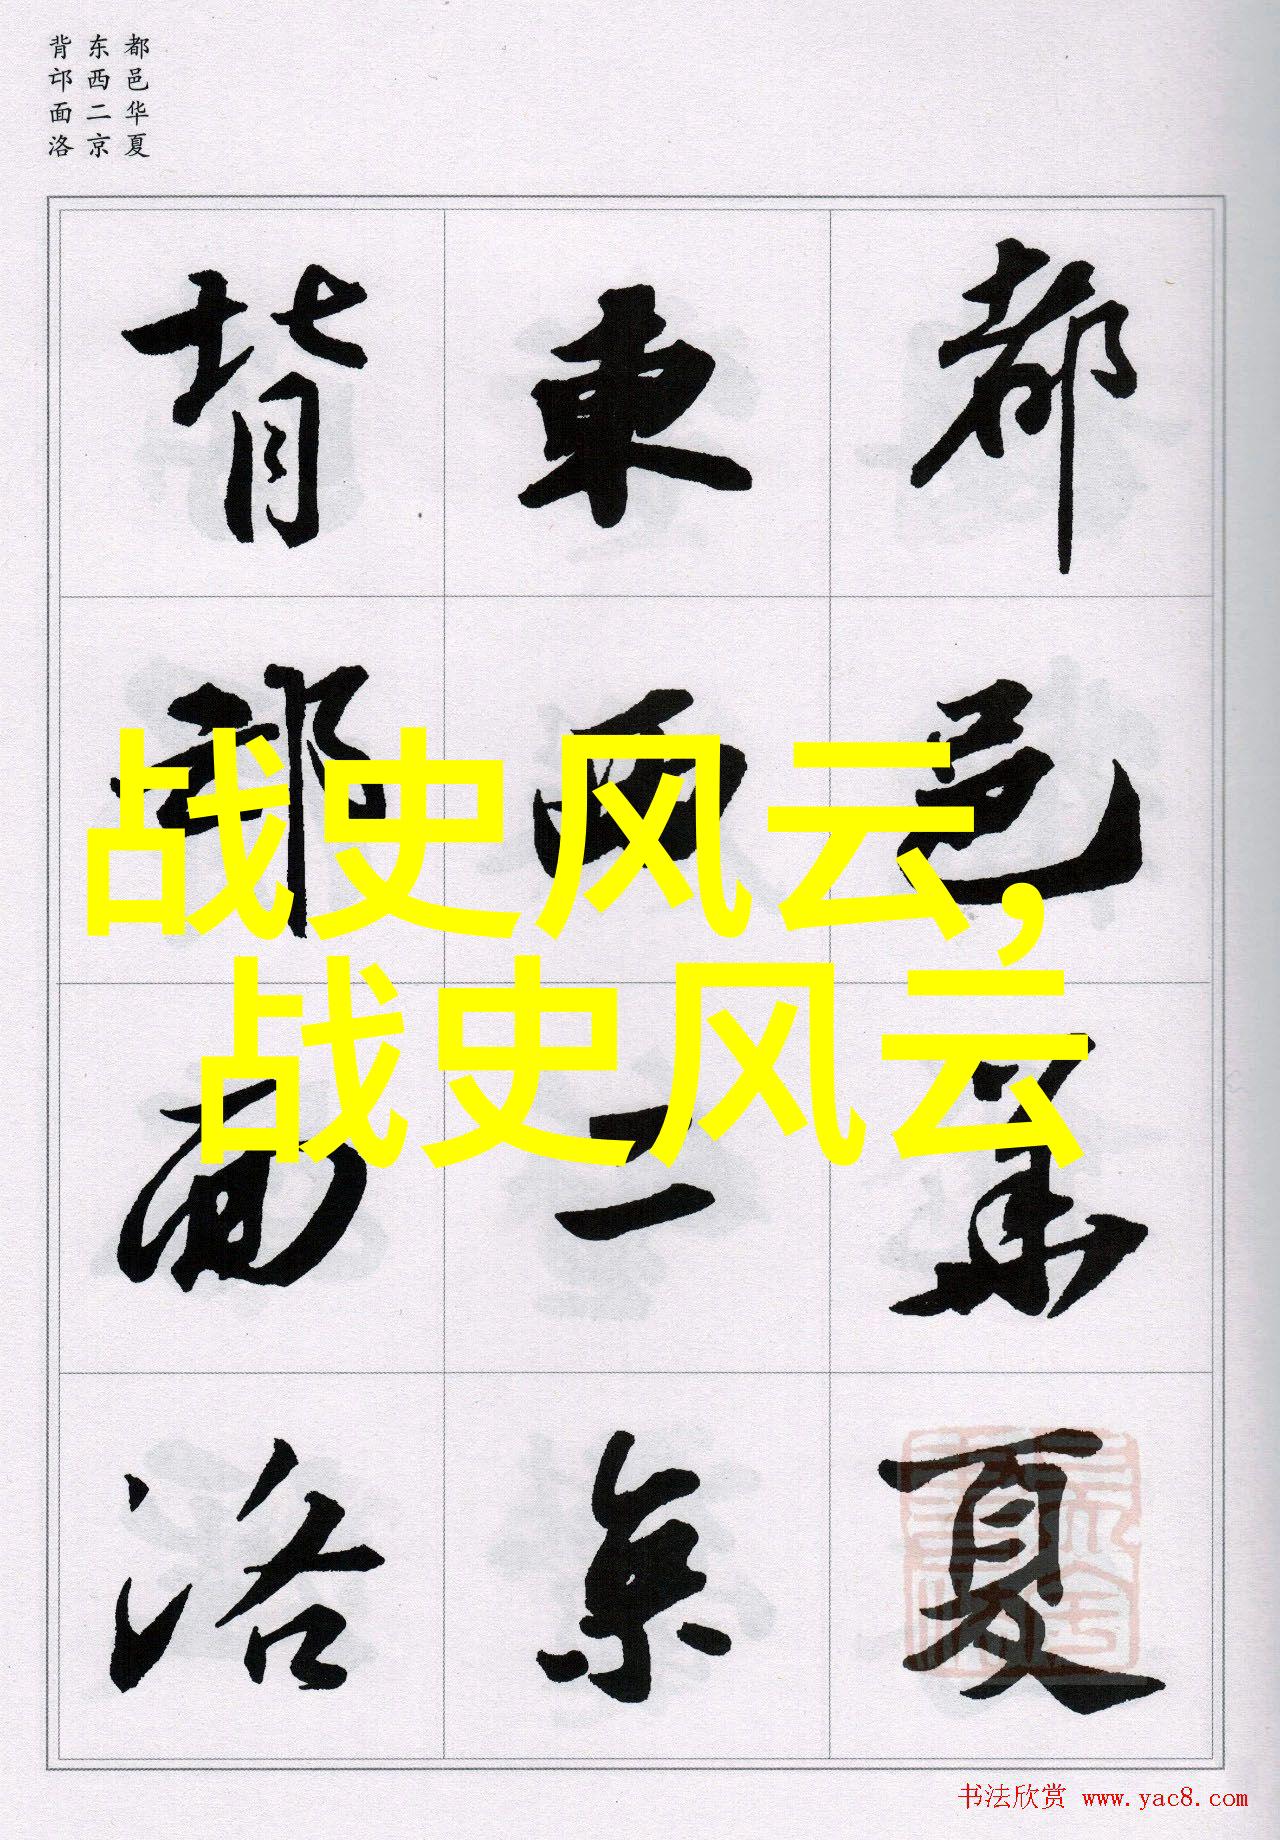 都邑华夏
东西二京
背邙面洛
都邑華夏
東西二京
背邙面洛
战史风云,
战史风云
书法欣赏 www.yac8.com